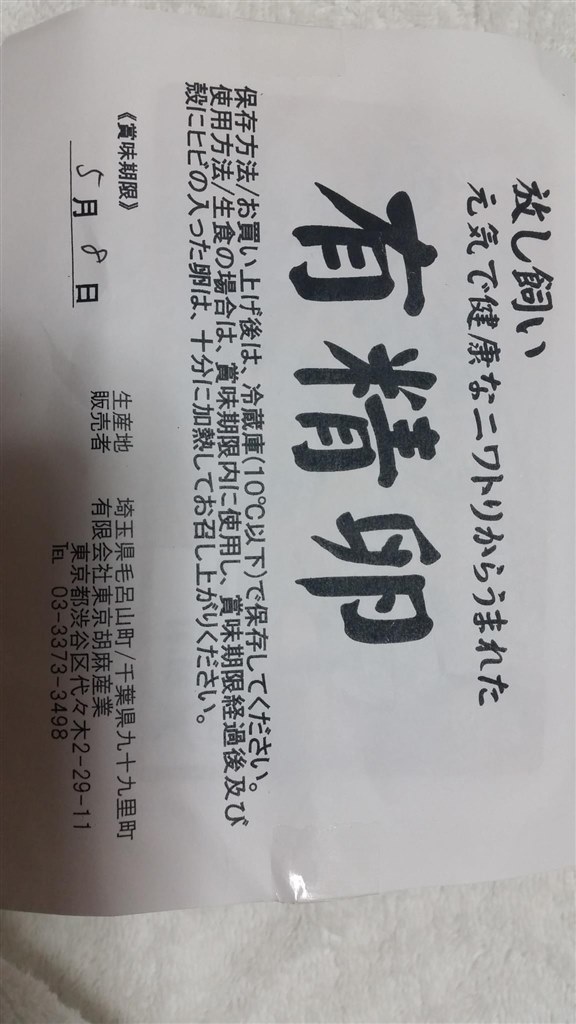 放し飼い
元気で健康なニワトリからうまれた
有精卵
保存方法/お買い上げ後は、冷蔵庫(10℃以下)で保存してください。
使用方法/生食の場合は、賞味期限内に使用し、賞味期限経過後及び
殻にヒビの入った卵は、十分に加熱してお召し上がりください。
《賞味期限》
5月8日
生産地 埼玉県毛呂山町/千葉県九十九里町
販売者 有限会社東京胡麻産業
東京都渋谷区代々木2-29-11
℡ 03-3373-3498